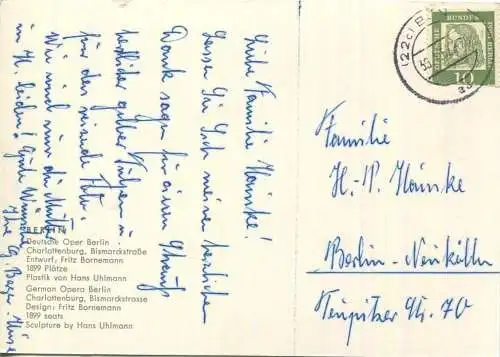 Liebe Familie Hainke!
Lassen Sie Sich meinen herzlichen
Dank sagen für einen Strauß
herrlicher gelber Tulpen u.
für das reizende Foto.
Wir sind nur die Mutter
in H. leiden! Gute Wünsche
Ihre
BERLIN
Deutsche Oper Berlin
Charlottenburg, Bismarckstraße
Entwurf: Fritz Bornemann
1899 Plätze
Plastik von Hans Uhlmann
German Opera Berlin
Charlottenburg, Bismarckstrasse
Design: Fritz Bornemann
1899 seats
Sculpture by Hans Uhlmann
(22c)
DEUTSCHE BUNDESPOST
10
Familie
H.-P. Hainke
Berlin-Neukölln
Teupitzer Str. 70